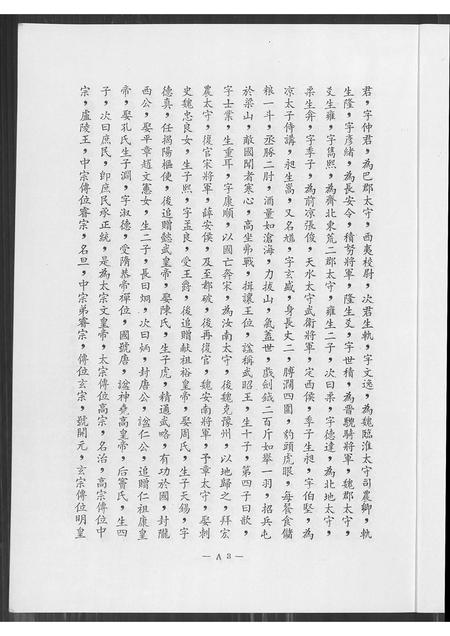 君，字仲君，為巴郡太守，西夷校尉，次君生軌，字文逸，為魏臨淮太守司農卿，軌
生隆，字彥緒，為長安令，積弩將軍，隆生艾，字世積，為晉驍騎將軍，魏郡太守，
艾生雍，字儁熙，為濟北東莞二郡太守，雍生二子，次曰柔，字德達，為北地太守，
柔生弇，字季子，為前凉張俊，天水太守武衛將軍，定西侯，季子生昶，字伯堅，為
凉太子侍講，昶生暠，又名，字玄盛，身長丈二，膊濶四圍，豹頭虎眼，每餐食儲
粮一斗，丞豚二肘，酒量如滄海，力拔山，氣蓋世，戲劍鉞二百斤如舉一羽，招兵屯
於梁山，敵國聞者寒心，高坐弗戰，揖讓王位，諡稱武昭王，生十子，第四子曰歆，
字士業，生重耳，字康順，以國亡奔宋，為汝南太守，後魏克豫州，以地歸之，拜宏
農太守，復官宋將軍，薛安侯，及至郡破，後再復官，魏安南將軍，予章太守，娶刺
史魏忠良女，生子熙，字孟良，受王爵，後追贈献祖裕皇帝，娶周氏，生子天錫，字
德真，任揭陽樞使，後追贈懿武皇帝，娶陳氏，生子虎，精通武略，有功於國，封隴
西公，娶平章趙文憲女，生二子，長曰炯，次曰炳，封唐公，諡仁公，追贈仁祖康皇
帝，娶孔氏生子淵，字淑德，受隋恭帝禪位，國號唐，諡神堯高皇帝，后竇氏，生四
子，次曰庶民，卽庶民承正統，是為太宗文皇帝，太宗傳位高宗，名治，高宗傳位中
宗，盧陵王，中宗傳位睿宗，名旦，中宗弟睿宗，傳位玄宗，號開元，玄宗傳位明皇
— A 3 —